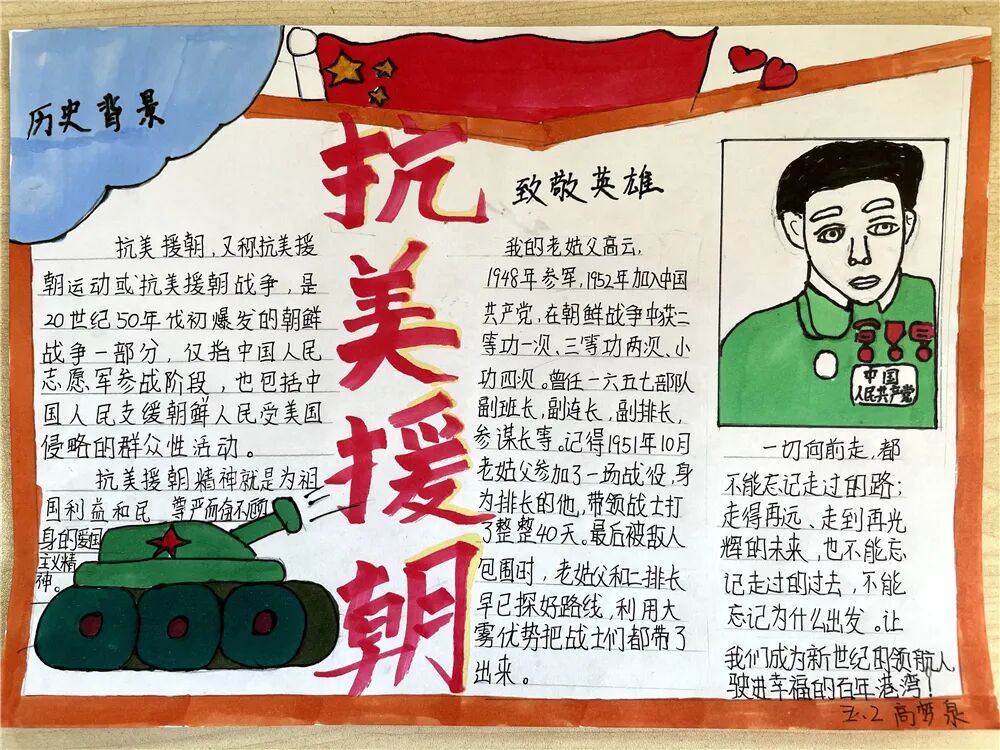 历史背景
抗美援朝，又称抗美援
朝运动或抗美援朝战争，是
20世纪50年代初爆发的朝鲜
战争一部分，仅指中国人民
志愿军参战阶段，也包括中
国人民支缓朝鲜人民受美国
侵略的群众性活动。
抗美援朝精神就是为祖
国利益和民 尊严而奋不顾
身的爱国
主义精
神。
抗美援朝
致敬英雄
我的老姑父高云，
1948年参军，1952年加入中国
共产党，在朝鲜战争中获二
等功一次、三等功两次、小
功四次。曾任一六五七部队
副班长，副连长，副排长，
参谋长等。记得1951年10月
老姑父参加了一场战役，身
为排长的他，带领战士打
了整整40天。最后被敌人
包围时，老姑父和二排长
早已探好路线，利用大
雾优势把战士们都带了
出来。
中国
人民共产党
一切向前走，都
不能忘记走过的路；
走得再远、走到再光
辉的未来，也不能忘
记走过的过去，不能
忘记为什么出发。让
我们成为新世纪的领航人
驶进幸福的百年港湾！
五.2 高梦泉